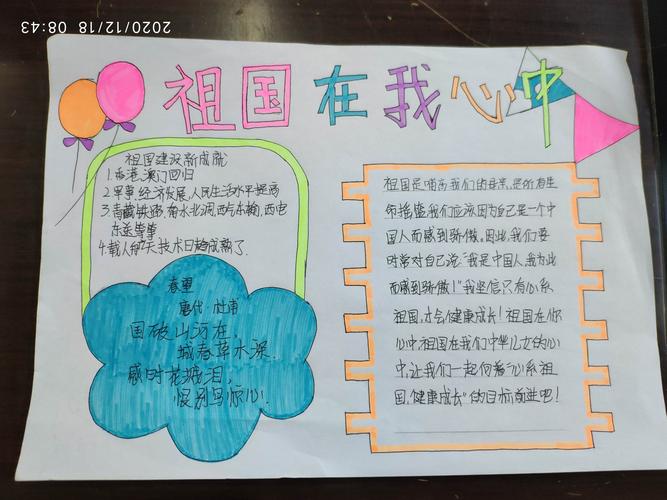 2020/12/18 08:43
祖国在我心中
祖国建设新成就
1.香港,澳门回归
2.军事,经济发展,人民生活水平提高
3.青藏铁路,南水北调,西气东输,西电
东送等等
4.载人航天技术日趋成熟了.
春望
唐代·杜甫
国破山河在,
城春草木深.
感时花溅泪,
恨别鸟惊心.
祖国是哺育我们的母亲,是
的摇篮,我们应该因为自己是一个中
国人而感到骄傲。因此,我们要
时常对自己说:"我是中国人,我为此
而感到骄傲!"我坚信只有心系
祖国,才会健康成长!祖国在你
心中,祖国在我们中华儿女的心
中,让我们一起向着"心系祖
国,健康成长"的目标前进吧!